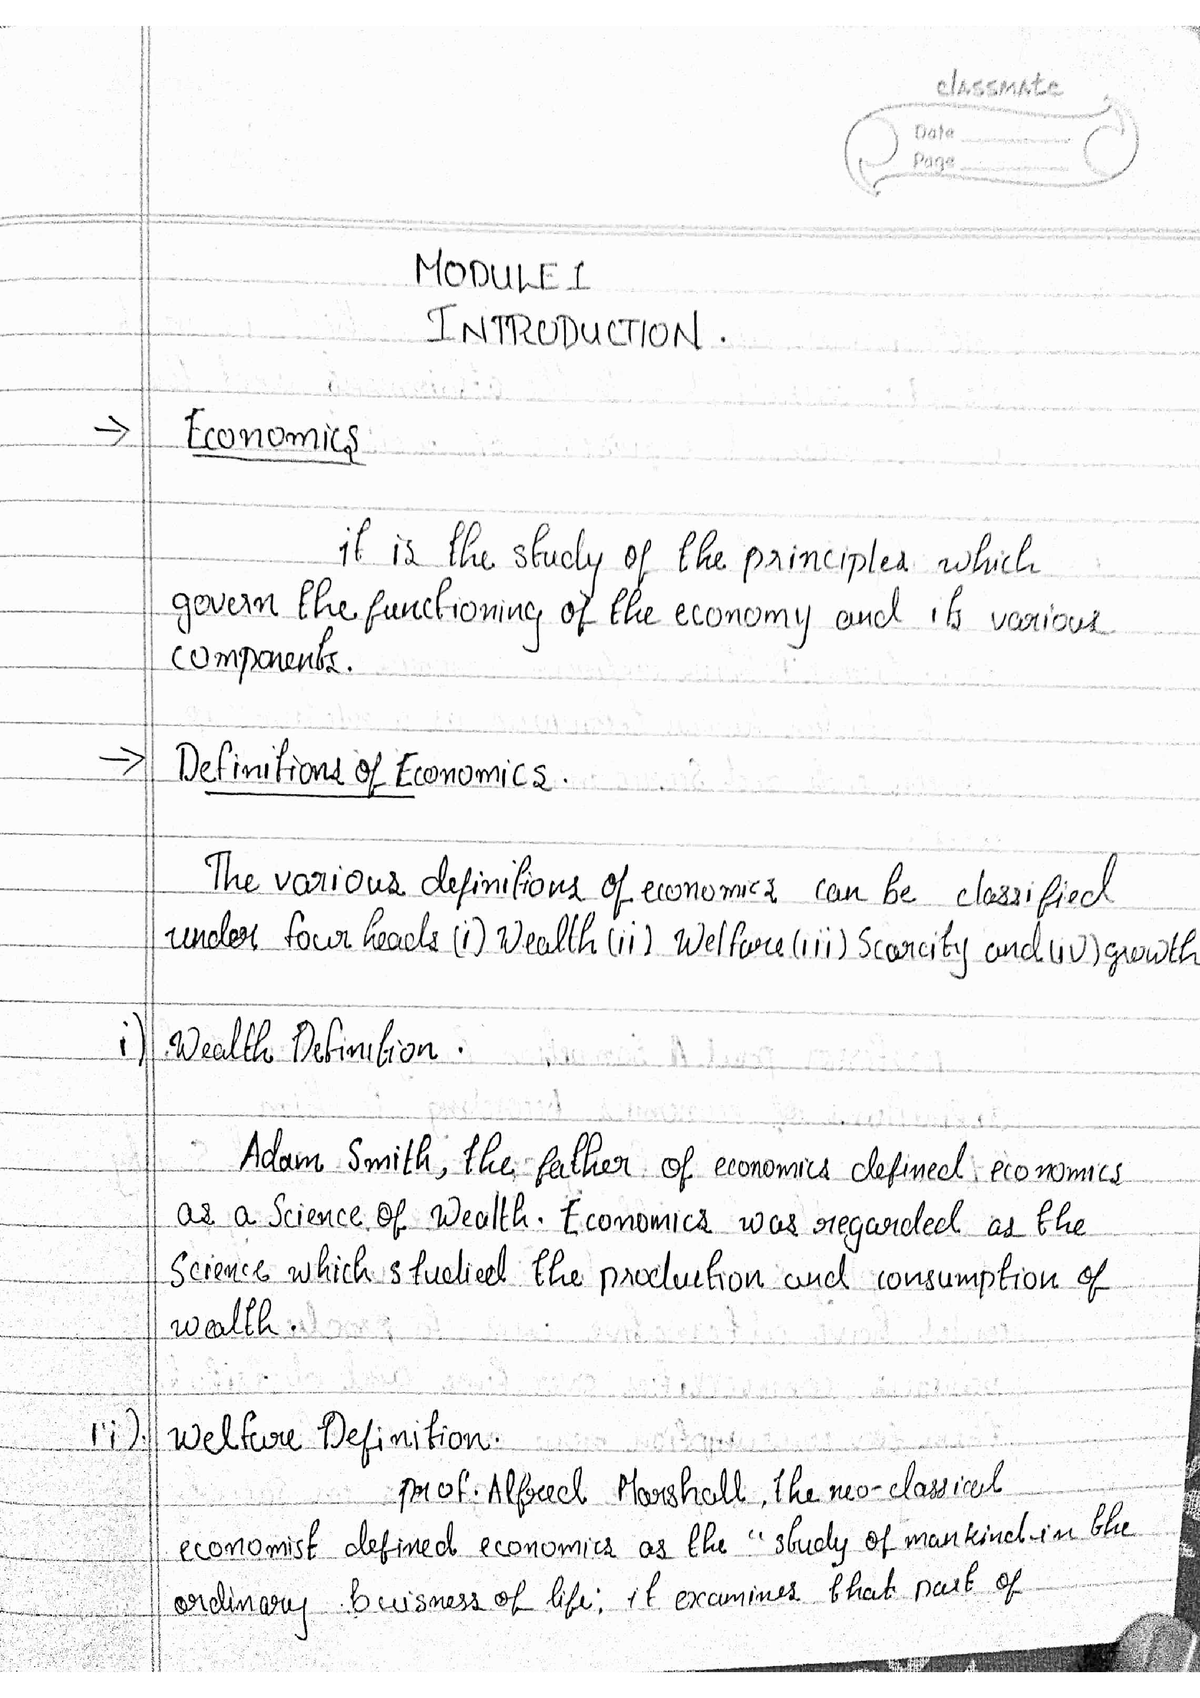 classmate
Date
Page
MODULE 1
INTRODUCTION.
→ Economics
it is the study of the principles which
govern the functioning of the economy and its various
components.
→ Definitions of Economics.
The various definitions of economics can be classified
under four heads (i) Wealth (ii) Welfare (iii) Scarcity and (iv) growth
i) Wealth Definition.
Adam Smith, the father of economics defined economics
as a Science of Wealth. Economics was regarded as the
Science which studied the production and consumption of
wealth.
ii). Welfare Definition.
prof. Alfred Marshall, the neo-classical
economist defined economics as the "study of mankind in the
ordinary buisness of life; it examines that part of